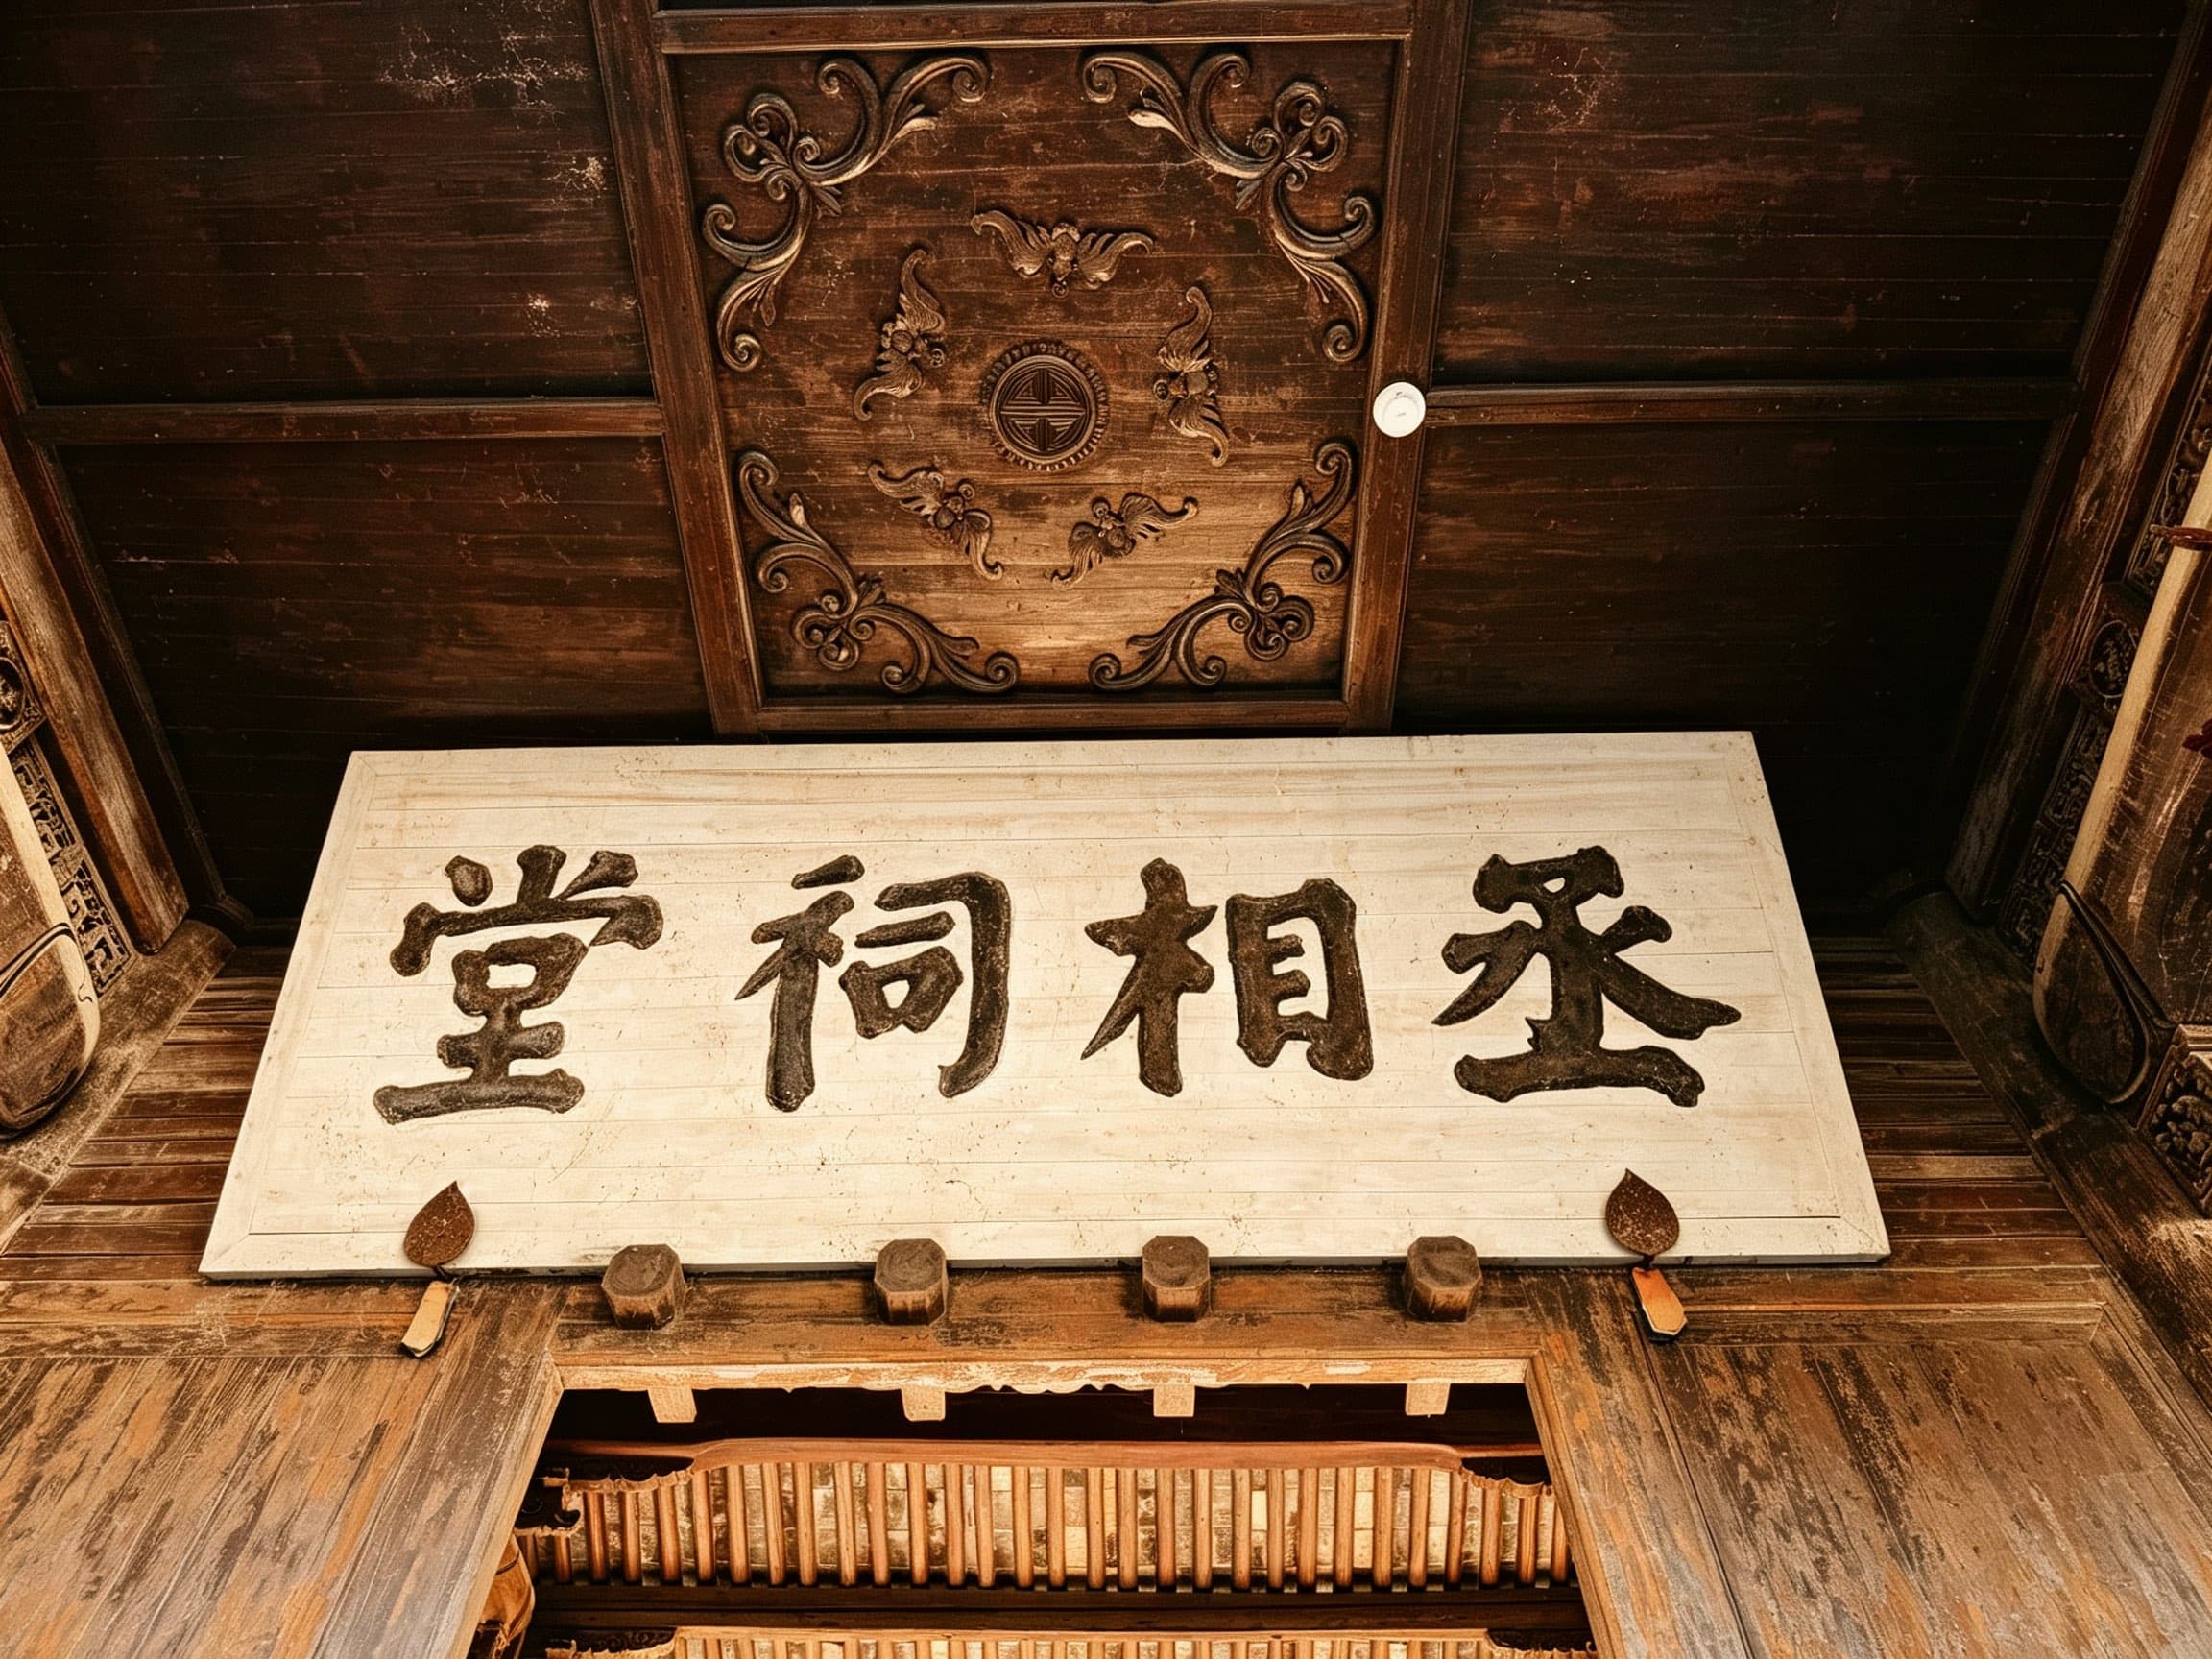 丞相祠堂